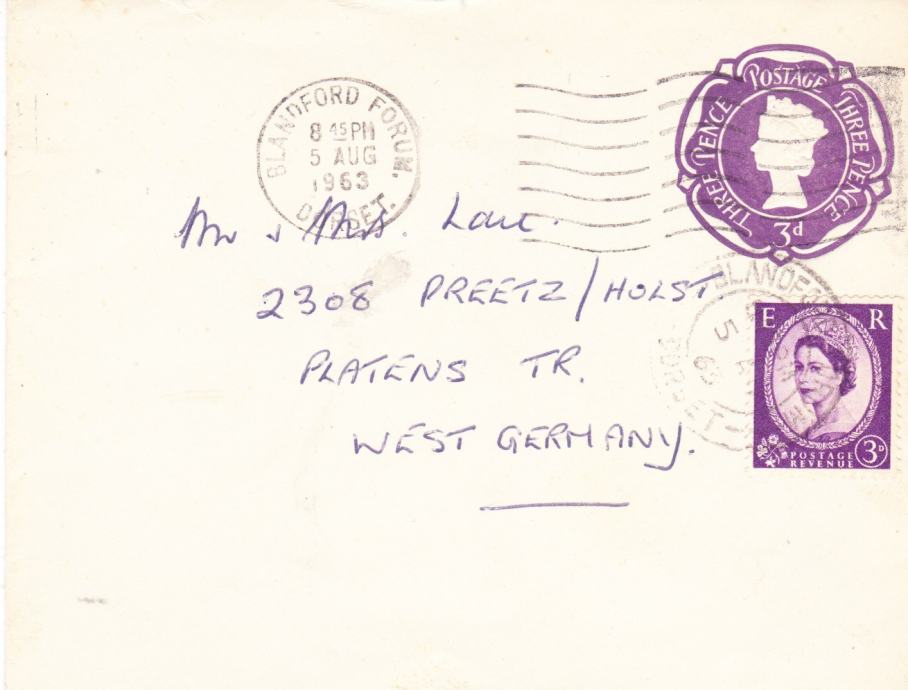 BLANDFORD FORUM.
8 45 PM
5 AUG
1963
DORSET.
POSTAGE
THREE PENCE
THREE PENCE
3d
Mr & Mrs.
2308 PREETZ/HOLST.
PLATENS TR.
WEST GERMANY.
BLANDFO
5
63
DORSET
E R
POSTAGE
REVENUE
3D